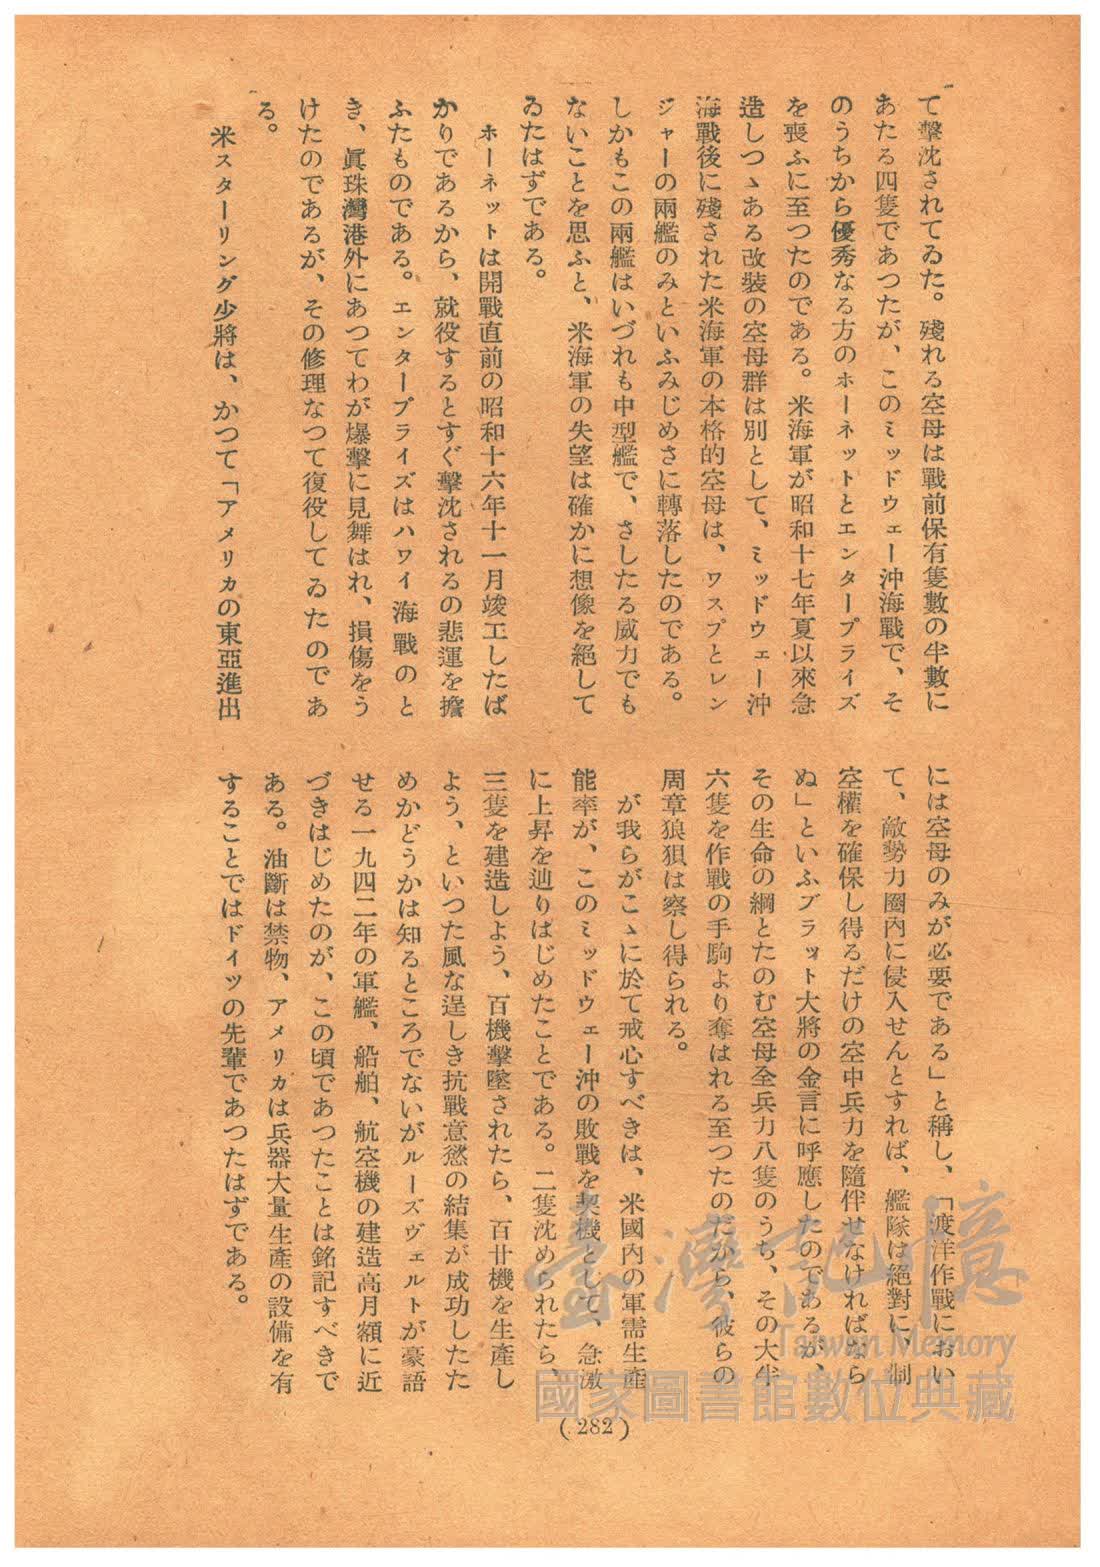 て擊沈されてゐた。殘れる空母は戰前保有隻數の半數に
あたる四隻であつたが、このミッドウェー沖海戰で、そ
のうちから優秀なる方のホーネットとエンタープライズ
を喪ふに至つたのである。米海軍が昭和十七年夏以來急
造しつゝある改裝の空母群は別として、ミッドウェー沖
海戰後に殘された米海軍の本格的空母は、ワスプとレン
ジャーの兩艦のみといふみじめさに轉落したのである。
しかもこの兩艦はいづれも中型艦で、さしたる威力でも
ないことを思ふと、米海軍の失望は確かに想像を絕して
ゐたはずである。
ホーネットは開戰直前の昭和十六年十一月竣工したば
かりであるから、就役するとすぐ擊沈されるの悲運を擔
ふたものである。エンタープライズはハワイ海戰のと
き、眞珠灣港外にあつてわが爆擊に見舞はれ、損傷をう
けたのであるが、その修理なつて復役してゐたのであ
る。
米スターリング少將は、かつて「アメリカの東亞進出
には空母のみが必要である」と稱し、「渡洋作戰におい
て、敵勢力圈內に侵入せんとすれば、艦隊は絕對に、制
空權を確保し得るだけの空中兵力を隨伴せなければなら
ぬ」といふブラット大將の金言に呼應したのであるが、
その生命の綱とたのむ空母全兵力八隻のうち、その大半
六隻を作戰の手駒より奪はれる至つたのだから、彼らの
周章狼狽は察し得られる。
が我らがこゝに於て戒心すべきは、米國內の軍需生產
能率が、このミッドウェー沖の敗戰を契機として、急激
に上昇を辿りはじめたことである。二隻沈められたら、
三隻を建造しよう、百機擊墜されたら、百廿機を生產し
よう、といつた風な逞しき抗戰意慾の結集が成功したた
めかどうかは知るところでないがルーズヴェルトが豪語
せる一九四二年の軍艦、船舶、航空機の建造高月額に近
づきはじめたのが、この頃であつたことは銘記すべきで
ある。油斷は禁物、アメリカは兵器大量生產の設備を有
することではドイツの先輩であつたはずである。
(282)
臺灣記憶
Taiwan Memory
國家圖書館數位典藏